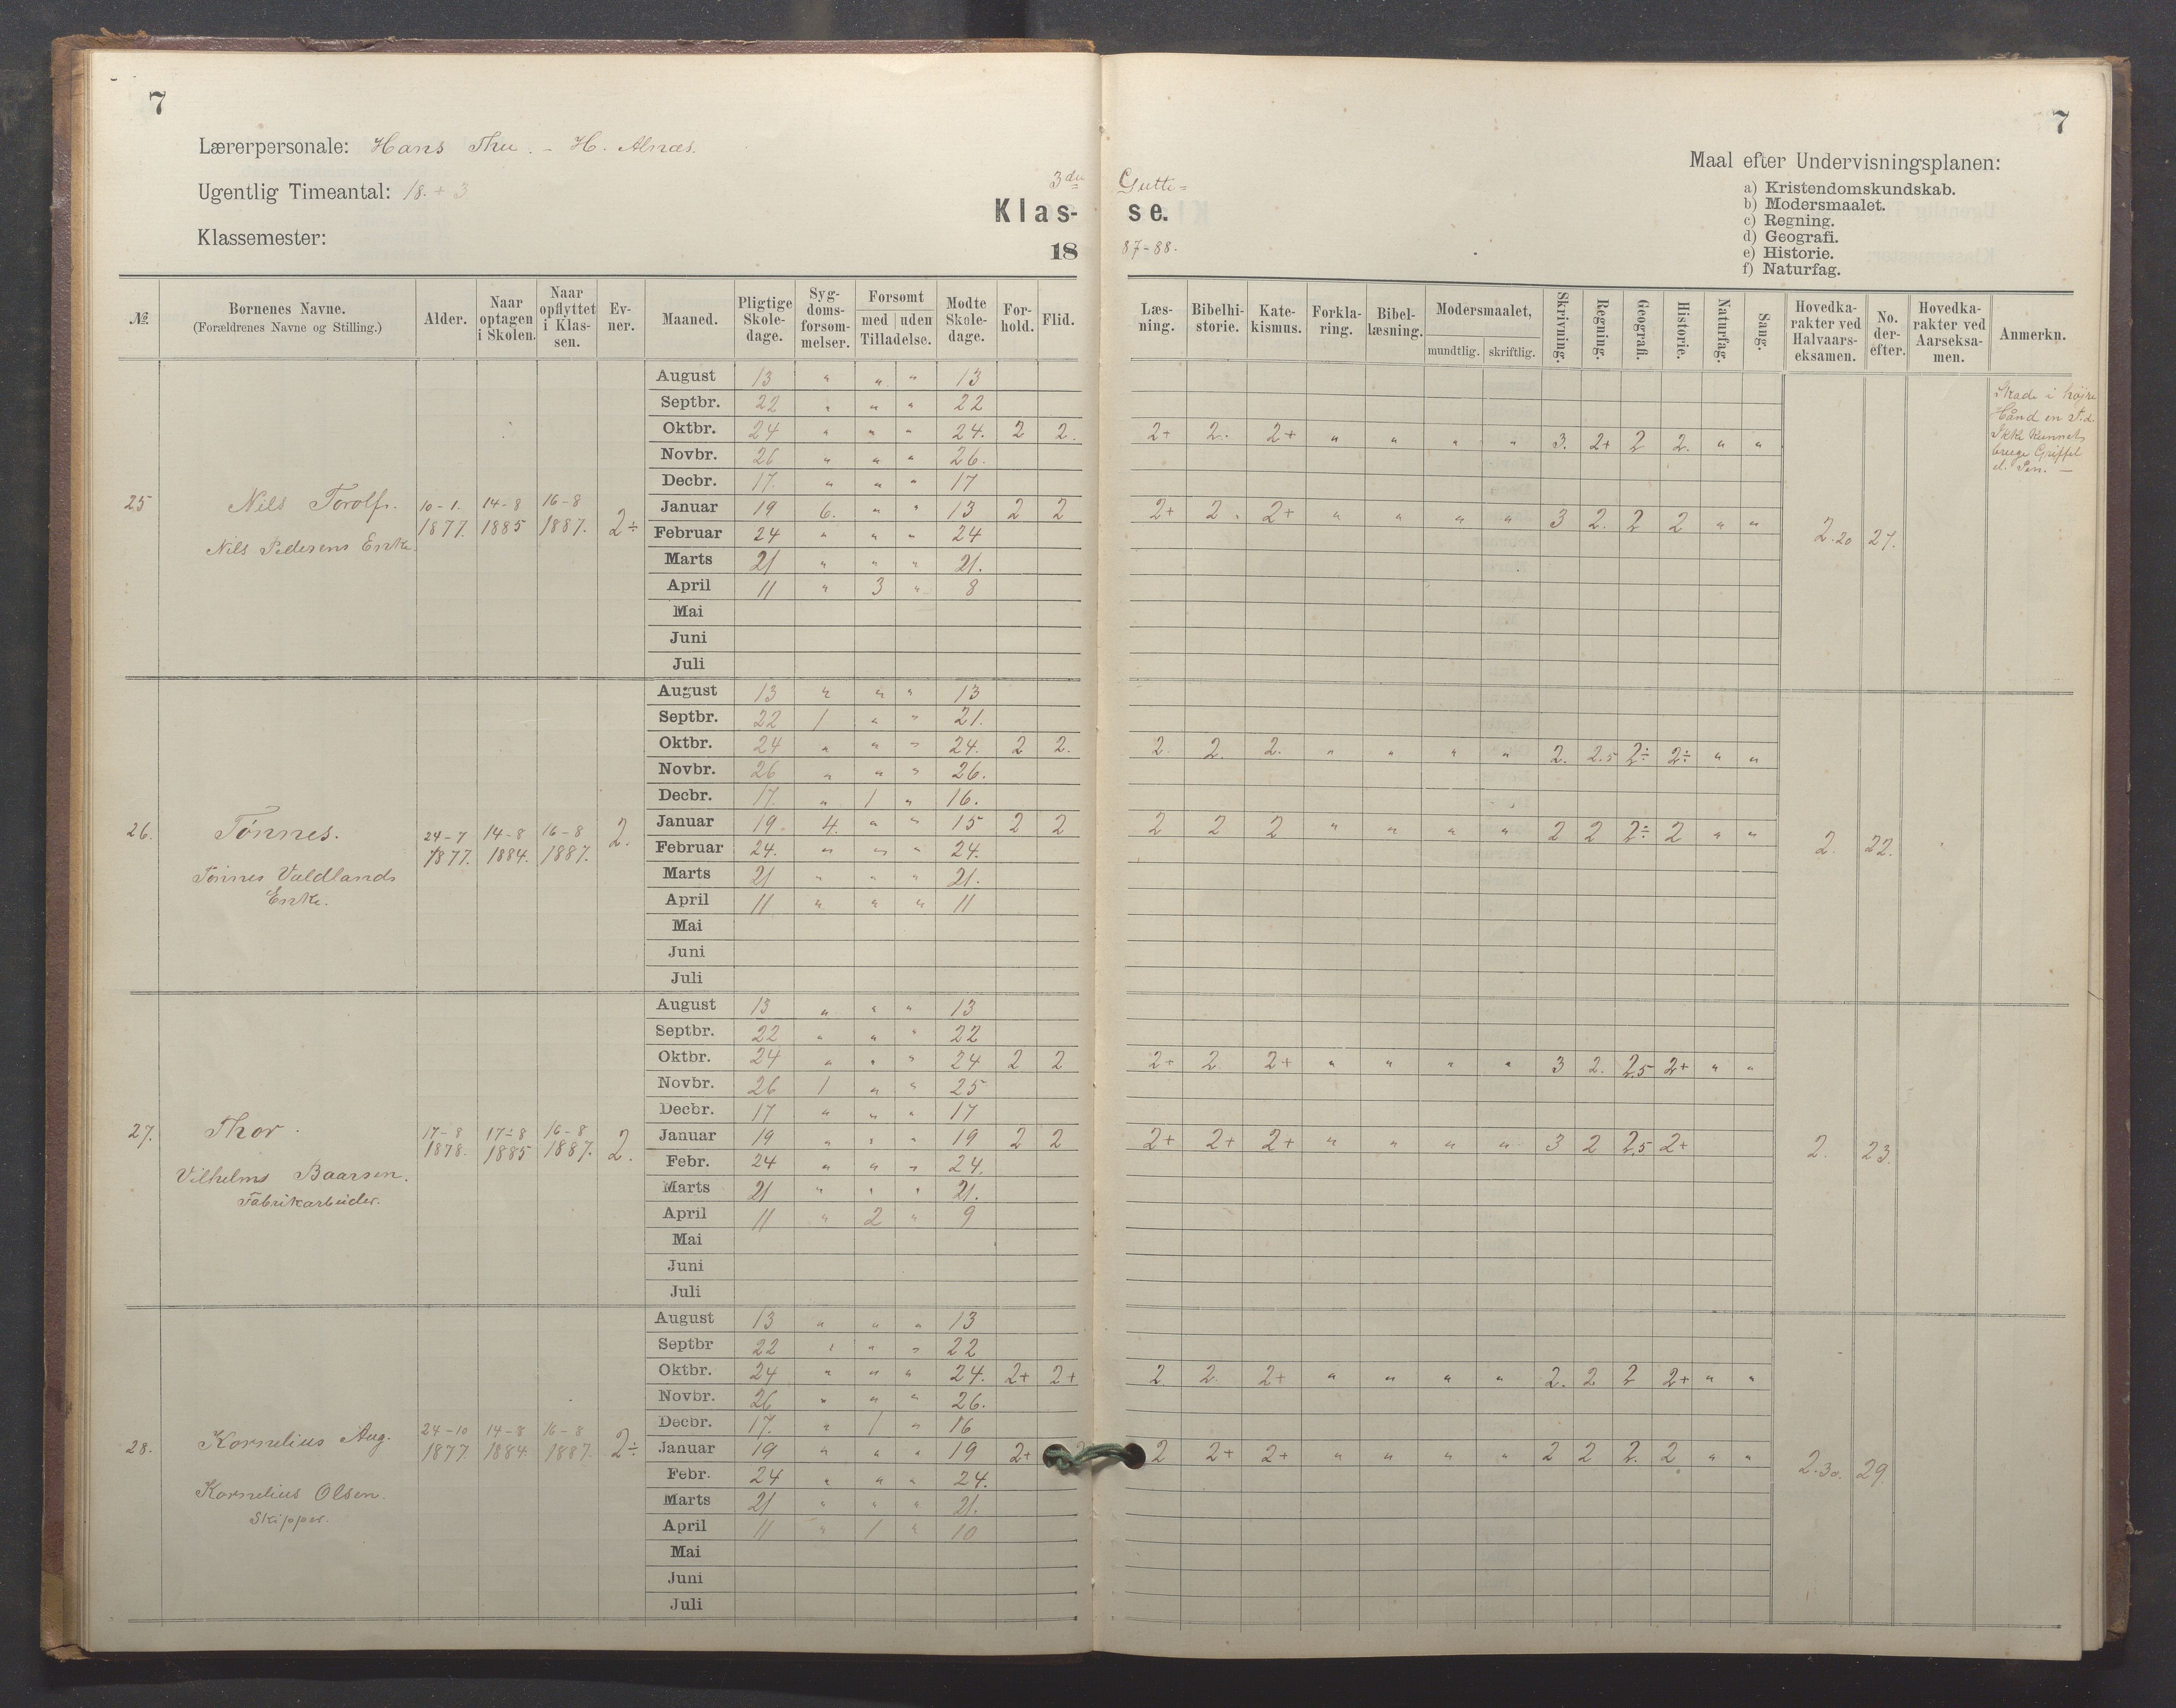 7
7
Lærerpersonale: Hans Thu. - H. Alnæs.
Ugentlig Timeantal: 18. + 3
Klassemester:
3die Gutte=
Klas- se.
18 87-88.
Maal efter Undervisningsplanen:
a) Kristendomskundskab.
b) Modersmaalet.
c) Regning.
d) Geografi.
e) Historie.
f) Naturfag.
№ Børnenes Navne. (Forældrenes Navne og Stilling.) Alder. Naar optagen i Skolen. Naar opflyttet i Klassen. Evner. Maaned. Pligtige Skoledage. Sygdomsforsømmelser. Forsømt med uden Tilladelse. Mødte Skoledage. Forhold. Flid. Læsning. Bibelhistorie. Katekismus. Forklaring. Bibellæsning. Modersmaalet, mundtlig. skriftlig. Skrivning. Regning. Geografi. Historie. Naturfag. Sang. Hovedkarakter ved Halvaarseksamen. No. derefter. Hovedkarakter ved Aarseksamen. Anmerkn.
25 Nils Torolf. 10-1. 1877. 14-8 1885 16-8 1887. 2÷
Nils Pedersens Enke.
August 13 " " " 13
Septbr. 22 " " " 22
Oktbr. 24 " " " 24. 2 2. 2+ 2. 2+ " " " " 3. 2+ 2 2. " "
Novbr. 26 " " " 26.
Decbr. 17. " " " 17
Januar 19 6. " " 13 2 2 2+ 2. 2+ " " " " 3 2. 2 2 " "
Februar 24 " " " 24
Marts 21 " " " 21.
April 11 " 3 " 8
Mai
Juni
Juli
2.20 27.
Skade i højre
Hånd en Tid.
Ikke kunnet
bruge Griffel
el. Pen. —
26. Tönnes. 24-7 1877. 14-8 1884. 16-8 1887. 2.
Tönnes Valdlands
Enke.
August 13 " " " 13
Septbr. 22 1 " " 21.
Oktbr. 24 " " " 24. 2 2. 2. 2. 2. " " " " 2. 2.5 2÷ 2÷ " "
Novbr. 26 " " " 26.
Decbr. 17. " 1 " 16.
Januar 19. 4. " " 15 2 2 2 2 2 " " " " 2 2 2÷ 2 " "
Februar 24. " " " 24.
Marts 21 " " " 21.
April 11 " " " 11
Mai
Juni
Juli
2. 22.
27. Thor. 17-8 1878. 17-8 1885 16-8 1887. 2.
Vilhelms Baarsen.
Fabrikarbeider.
August 13 " " " 13
Septbr. 22 " " " 22
Oktbr. 24 " " " 24 2 2 2+ 2 2+ " " " " 3 2. 2.5 2+ " "
Novbr. 26 1 " " 25
Decbr. 17 " " " 17
Januar 19 " " " 19 2 2 2+ 2+ 2+ " " " " 3 2 2.5 2+
Febr. 24 " " " 24.
Marts 21 " " " 21.
April 11 " 2 " 9
Mai
Juni
Juli
2. 23.
28. Kornelius Aug. 24-10 1877. 14-8 1884. 16-8 1887. 2÷
Kornelius Olsen.
Skipper.
August 13 " " " 13
Septbr 22 " " " 22
Oktbr. 24 " " " 24. 2+ 2+ 2 2 2+ " " " " 2. 2 2 2+ " "
Novbr. 26 " " " 26.
Decbr. 17. " 1 " 16
Januar 19 " " " 19 2+ 2 2+ 2+ " " " " 2 2 2. 2 " "
Febr. 24 " " " 24.
Marts 21 " " " 21.
April 11 " 1 " 10
Mai
Juni
Juli
2.30. 29.